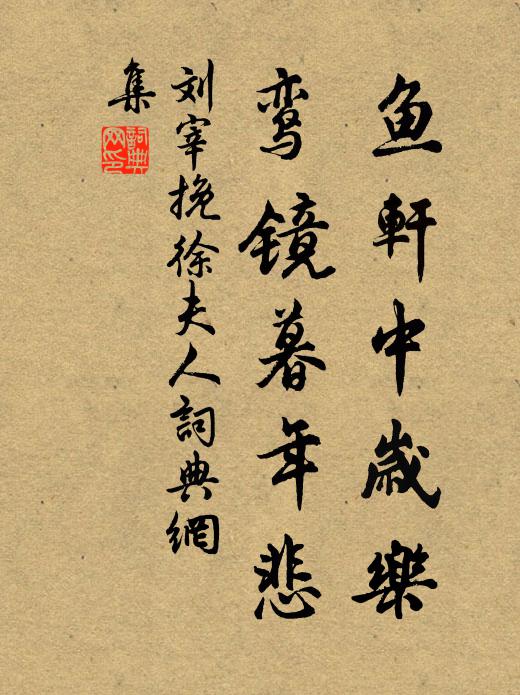 鱼軒中歲樂
鸾镜暮年悲
刘宰挽徐夫人詞典網
集
詞典
网印